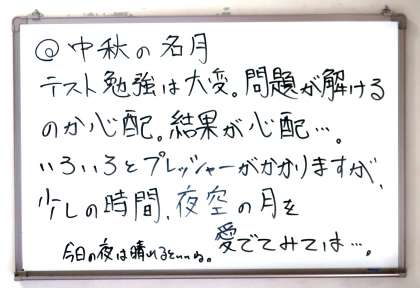 @中秋の名月
テスト勉強は大変。問題が解ける
のか心配。結果が心配…。
いろいろとプレッシャーがかかりますが、
少しの時間、夜空の月を
愛でてみては…。
今日の夜は晴れるといいね。